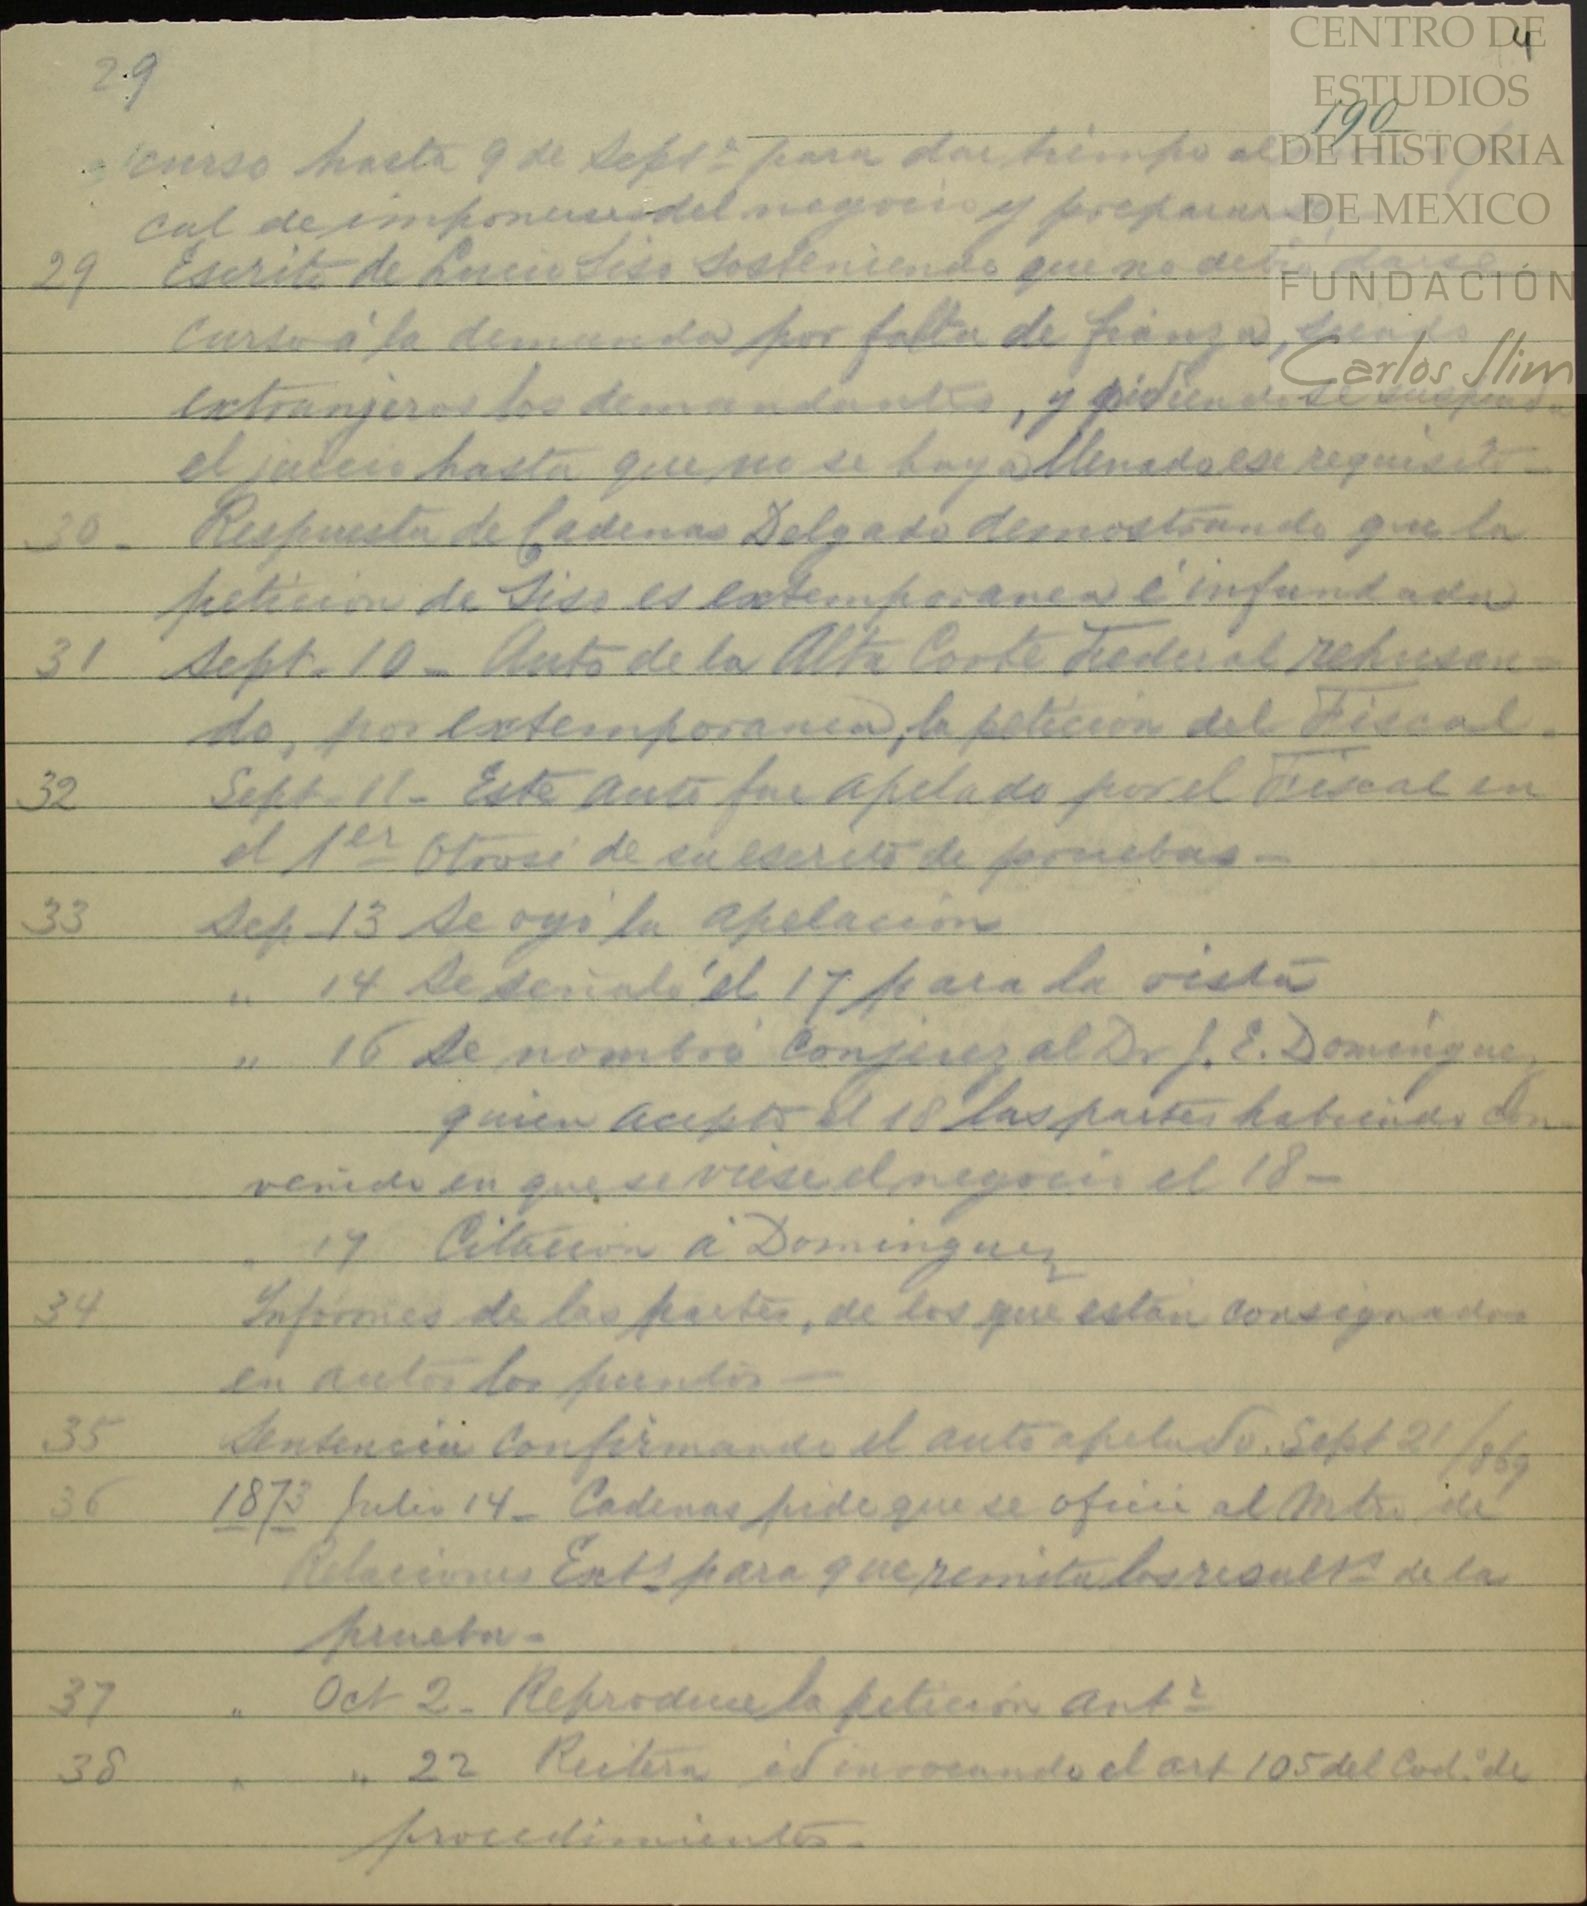 29
4
190
CENTRO DE
ESTUDIOS
DE HISTORIA
DE MEXICO
FUNDACIÓN
Carlos Slim
curso hasta 9 de Septe para dar tiempo al
cal de imponerse del negocio y prepararse
29 Escrito de Lucio Siso sosteniendo que no debió darse
curso á la demanda por falta de fianza, siendo
extranjeros los demandantes, y pidiendo se suspenda
el juicio hasta que no se haya llenado ese requisito -
30 - Respuesta de Cadenas Delgado demostrando que la
petición de Siso es extemporanea é infundada
31 Sept. 10 - Auto de la Alta Corte Federal rehusan-
do, por extemporanea, la petición del Fiscal.
32 Sept. 11 - Este auto fue apelado por el Fiscal en
el 1er Otrosi de su escrito de pruebas -
33 Sep - 13 Se oyó la apelación
" 14 Se señaló el 17 para la vista
" 16 Se nombró conjuez al Dr J. E. Domínguez
quien aceptó el 18 las partes habiendo con-
venido en que se viese el negocio el 18 -
" 17 Citación á Dominguez
34 Informes de las partes, de los que están consignados
en autos los puntos -
35 Sentencia confirmando el auto apelado. Sept 21/869
36 1873 Julio 14 - Cadenas pide que se oficie al Mtro de
Relaciones Exts para que remita los results de la
prueba -
37 " Oct 2 - Reproduce la petición antr
38 " " 22 Reitera id invocando el art 105 del Codo de
procedimientos -